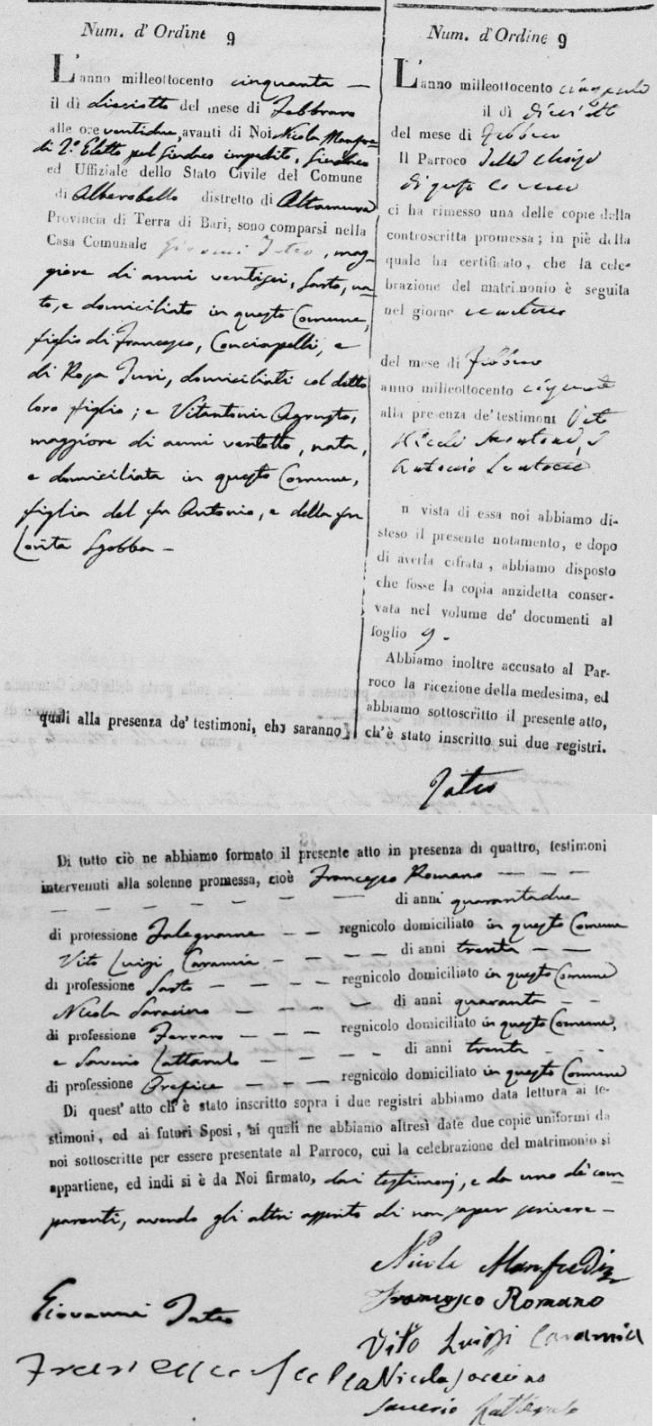 Num. d' Ordine 9
L'anno milleottocento cinquanta —
il dì dieciotto del mese di Febbraro
alle ore ventidue, avanti di Noi Nicola Manfre
di 2.° Eletto pel Sindaco impedito, Sindaco
ed Uffiziale dello Stato Civile del Comune
di Alberobello distretto di Altamura
Provincia di Terra di Bari, sono comparsi nella
Casa Comunale Giovanni Tateo, mag-
giore di anni ventisei, sarto, na-
to, e domiciliato in questo Comune,
figlio di Francesco, Conciapelli, e
di Rosa Turi, domiciliati col detto
loro figlio; e Vitantonia Agrusto,
maggiore di anni ventotto, nata,
e domiciliata in questo Comune,
figlia del fu Antonio, e della fu
Lorita Sgobba —
quali alla presenza de' testimoni, che saranno
Num. d' Ordine 9
L'anno milleottocento cinquanta
il dì dieciotto
del mese di Febbraro
Il Parroco della Chiesa
di questo Comune
ci ha rimesso una delle copie della
controscritta promessa; in piè della
quale ha certificato, che la cele-
brazione del matrimonio è seguita
nel giorno
del mese di Febbraro
anno milleottocento cinquanta
alla presenza de' testimoni Vito
Antonio
n vista di essa noi abbiamo di-
steso il presente notamento, e dopo
di averla cifrata, abbiamo disposto
che fosse la copia anzidetta conser-
vata nel volume de' documenti al
foglio 9.
Abbiamo inoltre accusato al Par-
roco la ricezione della medesima, ed
abbiamo sottoscritto il presente atto,
ch'è stato inscritto sui due registri.
Tateo
Di tutto ciò ne abbiamo formato il presente atto in presenza di quattro, testimoni
intervenuti alla solenne promessa, cioè Francesco Romano — — —
— — — — — — — di anni quarantadue
di professione Falegname — — regnicolo domiciliato in questo Comune
Vito Luigi Caramia — — — — di anni trenta — —
di professione Sarto — — — — regnicolo domiciliato in questo Comune
Nicola Saracino — — — — di anni quaranta — —
di professione Ferraro — — — regnicolo domiciliato in questo Comune,
e Saverio Lattarulo — — — — di anni trenta — — —
di professione Orefice — — — regnicolo domiciliato in questo Comune
Di quest' atto ch' è stato inscritto sopra i due registri abbiamo data lettura ai te-
stimoni, ed ai futuri Sposi, ai quali ne abbiamo altresì date due copie uniformi da
noi sottoscritte per essere presentate al Parroco, cui la celebrazione del matrimonio si
appartiene, ed indi si è da Noi firmato, dai testimonj, e da uno de' com-
parenti, avendo gli altri asserito di non saper scrivere —
Nicola Manfredi
Francesco Romano
Giovanni Tateo
Vito Luigi Caramia
Nicola Saracino
Saverio Lattarulo